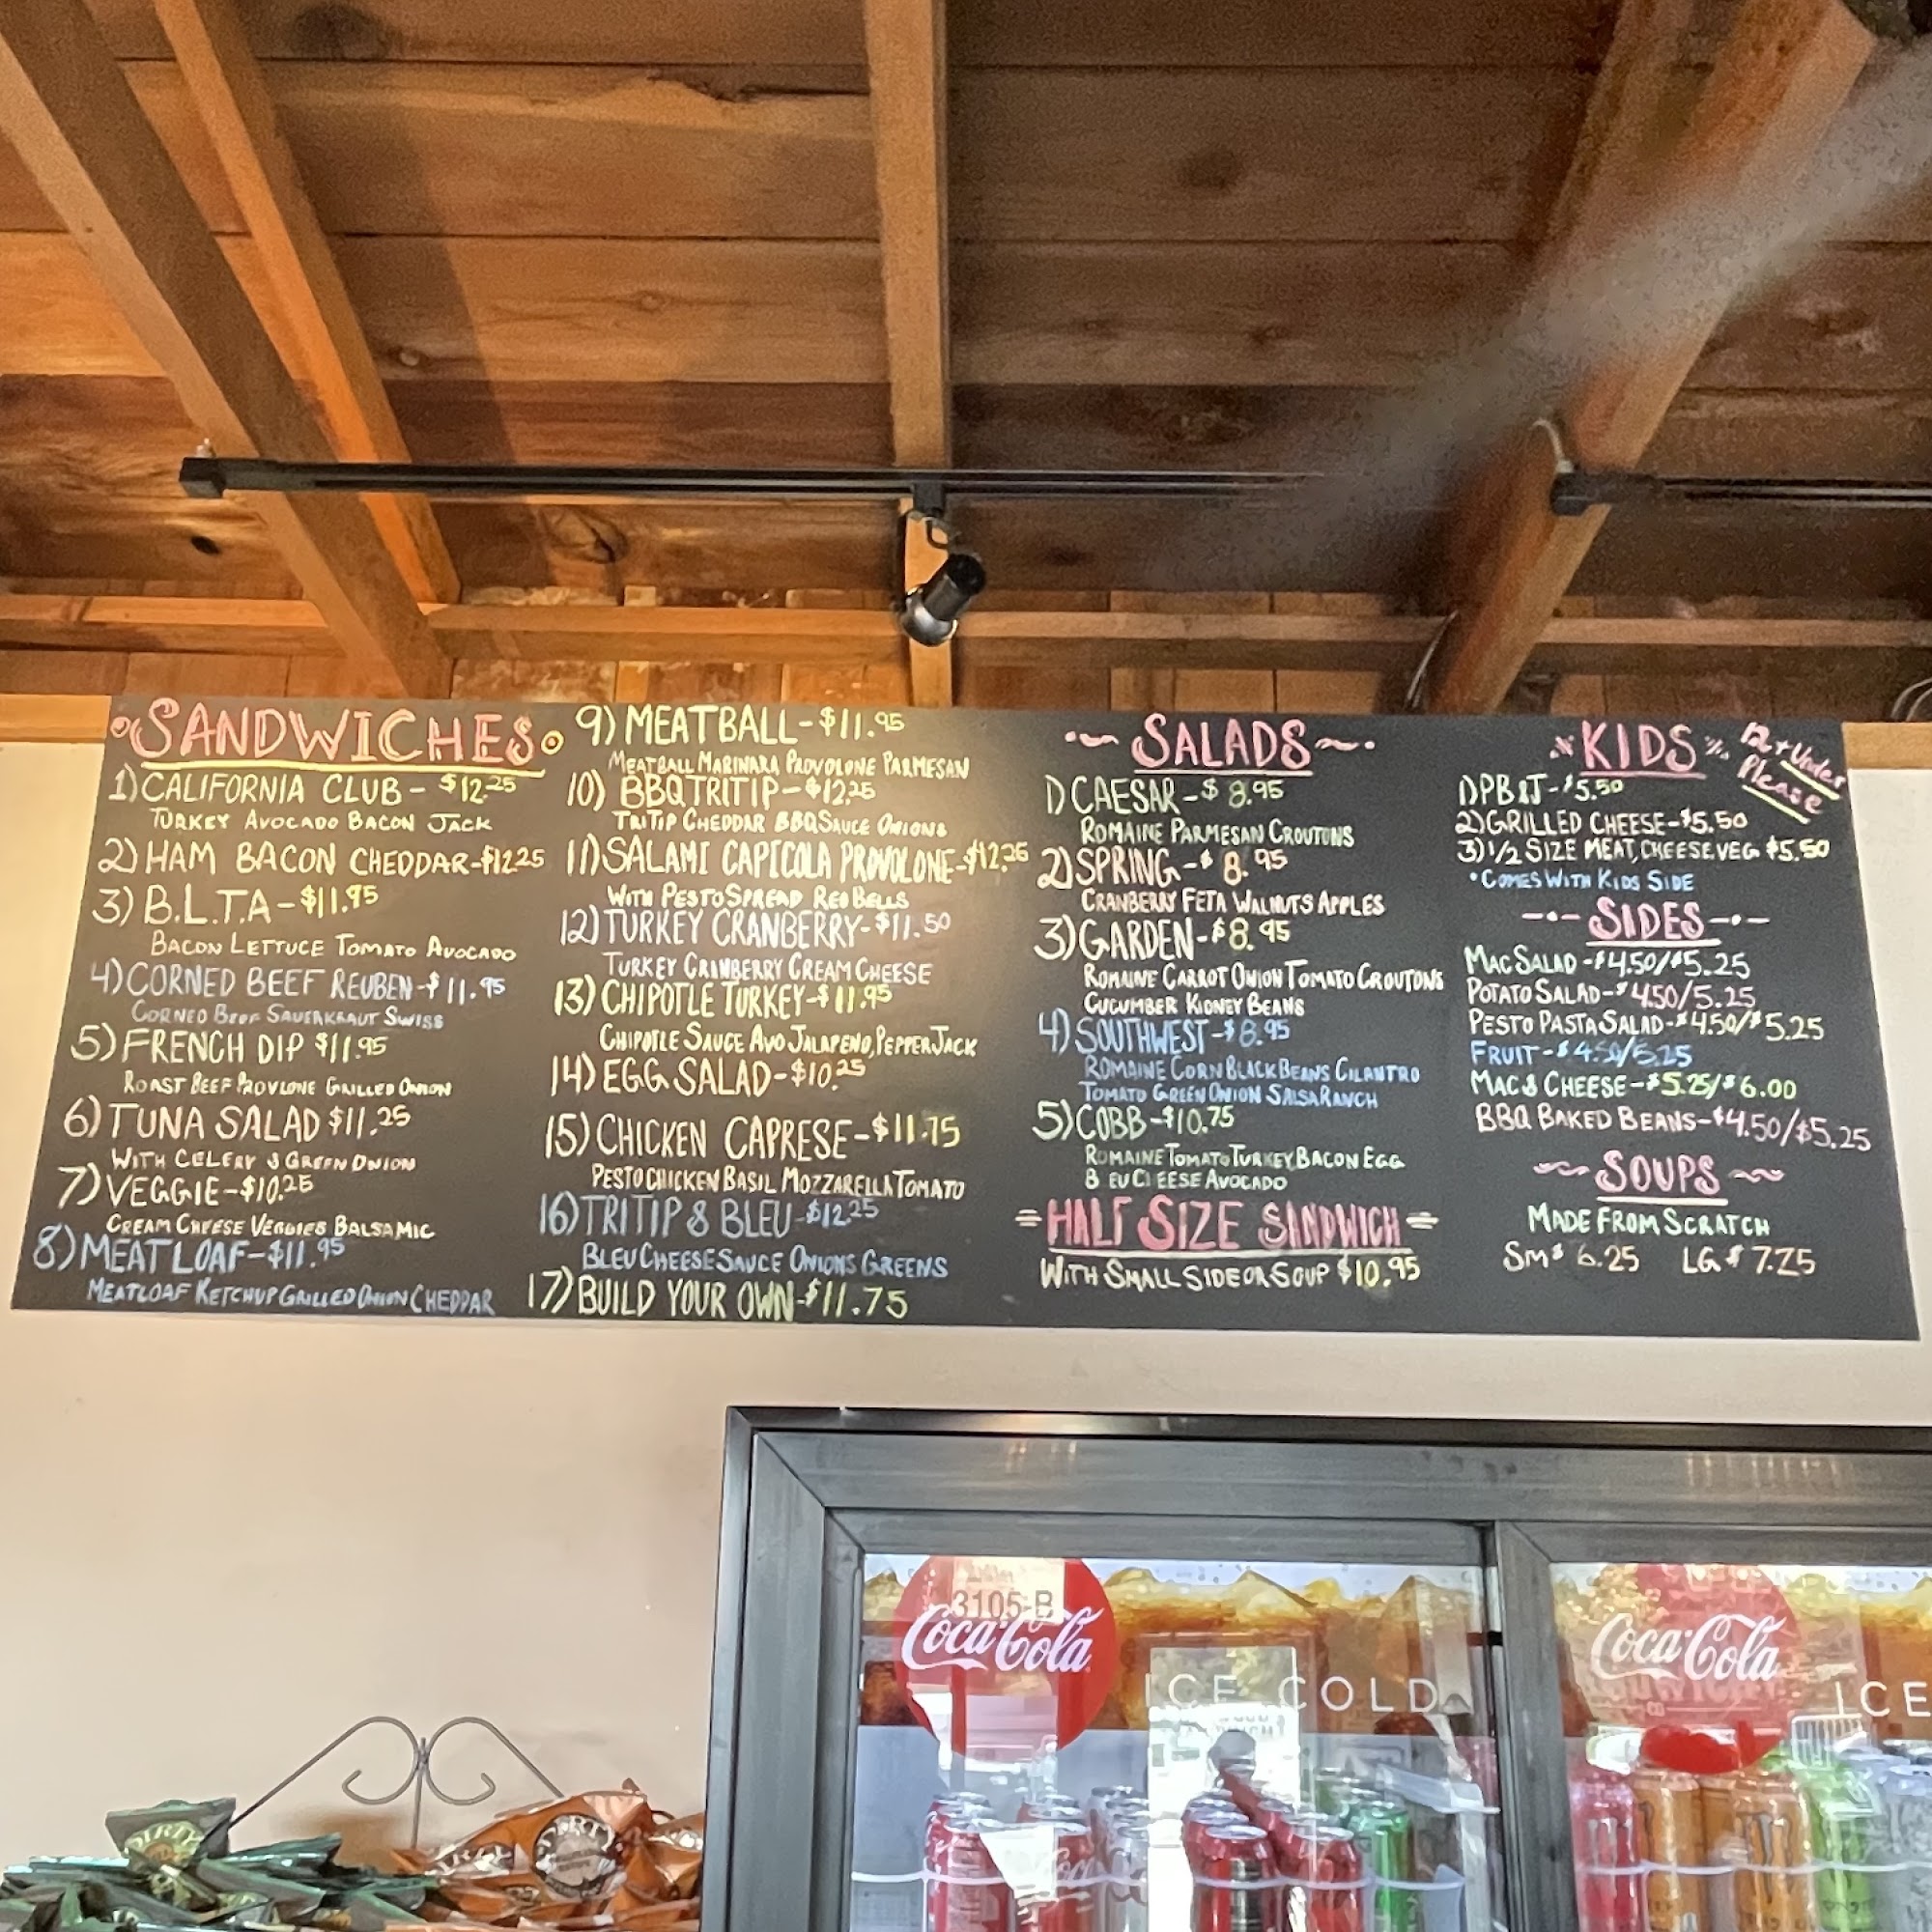 SANDWICHES
1) CALIFORNIA CLUB - $12.25
TURKEY AVOCADO BACON JACK
2) HAM BACON CHEDDAR-$12.25
3) B.L.T.A - $11.95
BACON LETTUCE TOMATO AVOCADO
4) CORNED BEEF REUBEN-$11.95
CORNED BEEF SAUERKRAUT SWISS
5) FRENCH DIP $11.95
ROAST BEEF PROVLONE GRILLED ONION
6) TUNA SALAD $11.25
WITH CELERY & GREEN ONION
7) VEGGIE-$10.25
CREAM CHEESE VEGGIES BALSAMIC
8) MEATLOAF-$11.95
MEATLOAF KETCHUP GRILLED ONION CHEDDAR
9) MEATBALL-$11.95
MEATBALL MARINARA PROVOLONE PARMESAN
10) BBQ TRITIP-$12.25
TRITIP CHEDDAR BBQ SAUCE ONIONS
11) SALAMI CAPICOLA PROVOLONE-$12.25
WITH PESTO SPREAD RED BELLS
12) TURKEY CRANBERRY-$11.50
TURKEY CRANBERRY CREAM CHEESE
13) CHIPOTLE TURKEY-$11.95
CHIPOTLE SAUCE AVO JALAPENO, PEPPER JACK
14) EGG SALAD-$10.25
15) CHICKEN CAPRESE-$11.75
PESTO CHICKEN BASIL MOZZARELLA TOMATO
16) TRITIP & BLEU-$12.25
BLEU CHEESE SAUCE ONIONS GREENS
17) BUILD YOUR OWN-$11.75
SALADS
1) CAESAR-$ 8.95
ROMAINE PARMESAN CROUTONS
2) SPRING-$ 8.95
CRANBERRY FETA WALNUTS APPLES
3) GARDEN-$8.95
ROMAINE CARROT ONION TOMATO CROUTONS
CUCUMBER KIDNEY BEANS
4) SOUTHWEST-$8.95
ROMAINE CORN BLACK BEANS CILANTRO
TOMATO GREEN ONION SALSA RANCH
5) COBB-$10.75
ROMAINE TOMATO TURKEY BACON EGG
B EU C EESE AVOCADO
HALF SIZE SANDWICH
WITH SMALL SIDE OR SOUP $10.95
KIDS
12 + Under
Please
1) PB&J-$5.50
2) GRILLED CHEESE-$5.50
3) 1/2 SIZE MEAT, CHEESE, VEG $5.50
*COMES WITH KIDS SIDE
SIDES
MAC SALAD-$4.50/$5.25
POTATO SALAD-$4.50/5.25
PESTO PASTA SALAD-$4.50/$5.25
FRUIT-$4.50/5.25
MAC & CHEESE-$5.25/$6.00
BBQ BAKED BEANS-$4.50/$5.25
SOUPS
MADE FROM SCRATCH
SM $ 6.25 LG $ 7.25
3105-B
Coca-Cola
ICE COLD
Coca-Cola
ICE
DIRTY
DIRTY